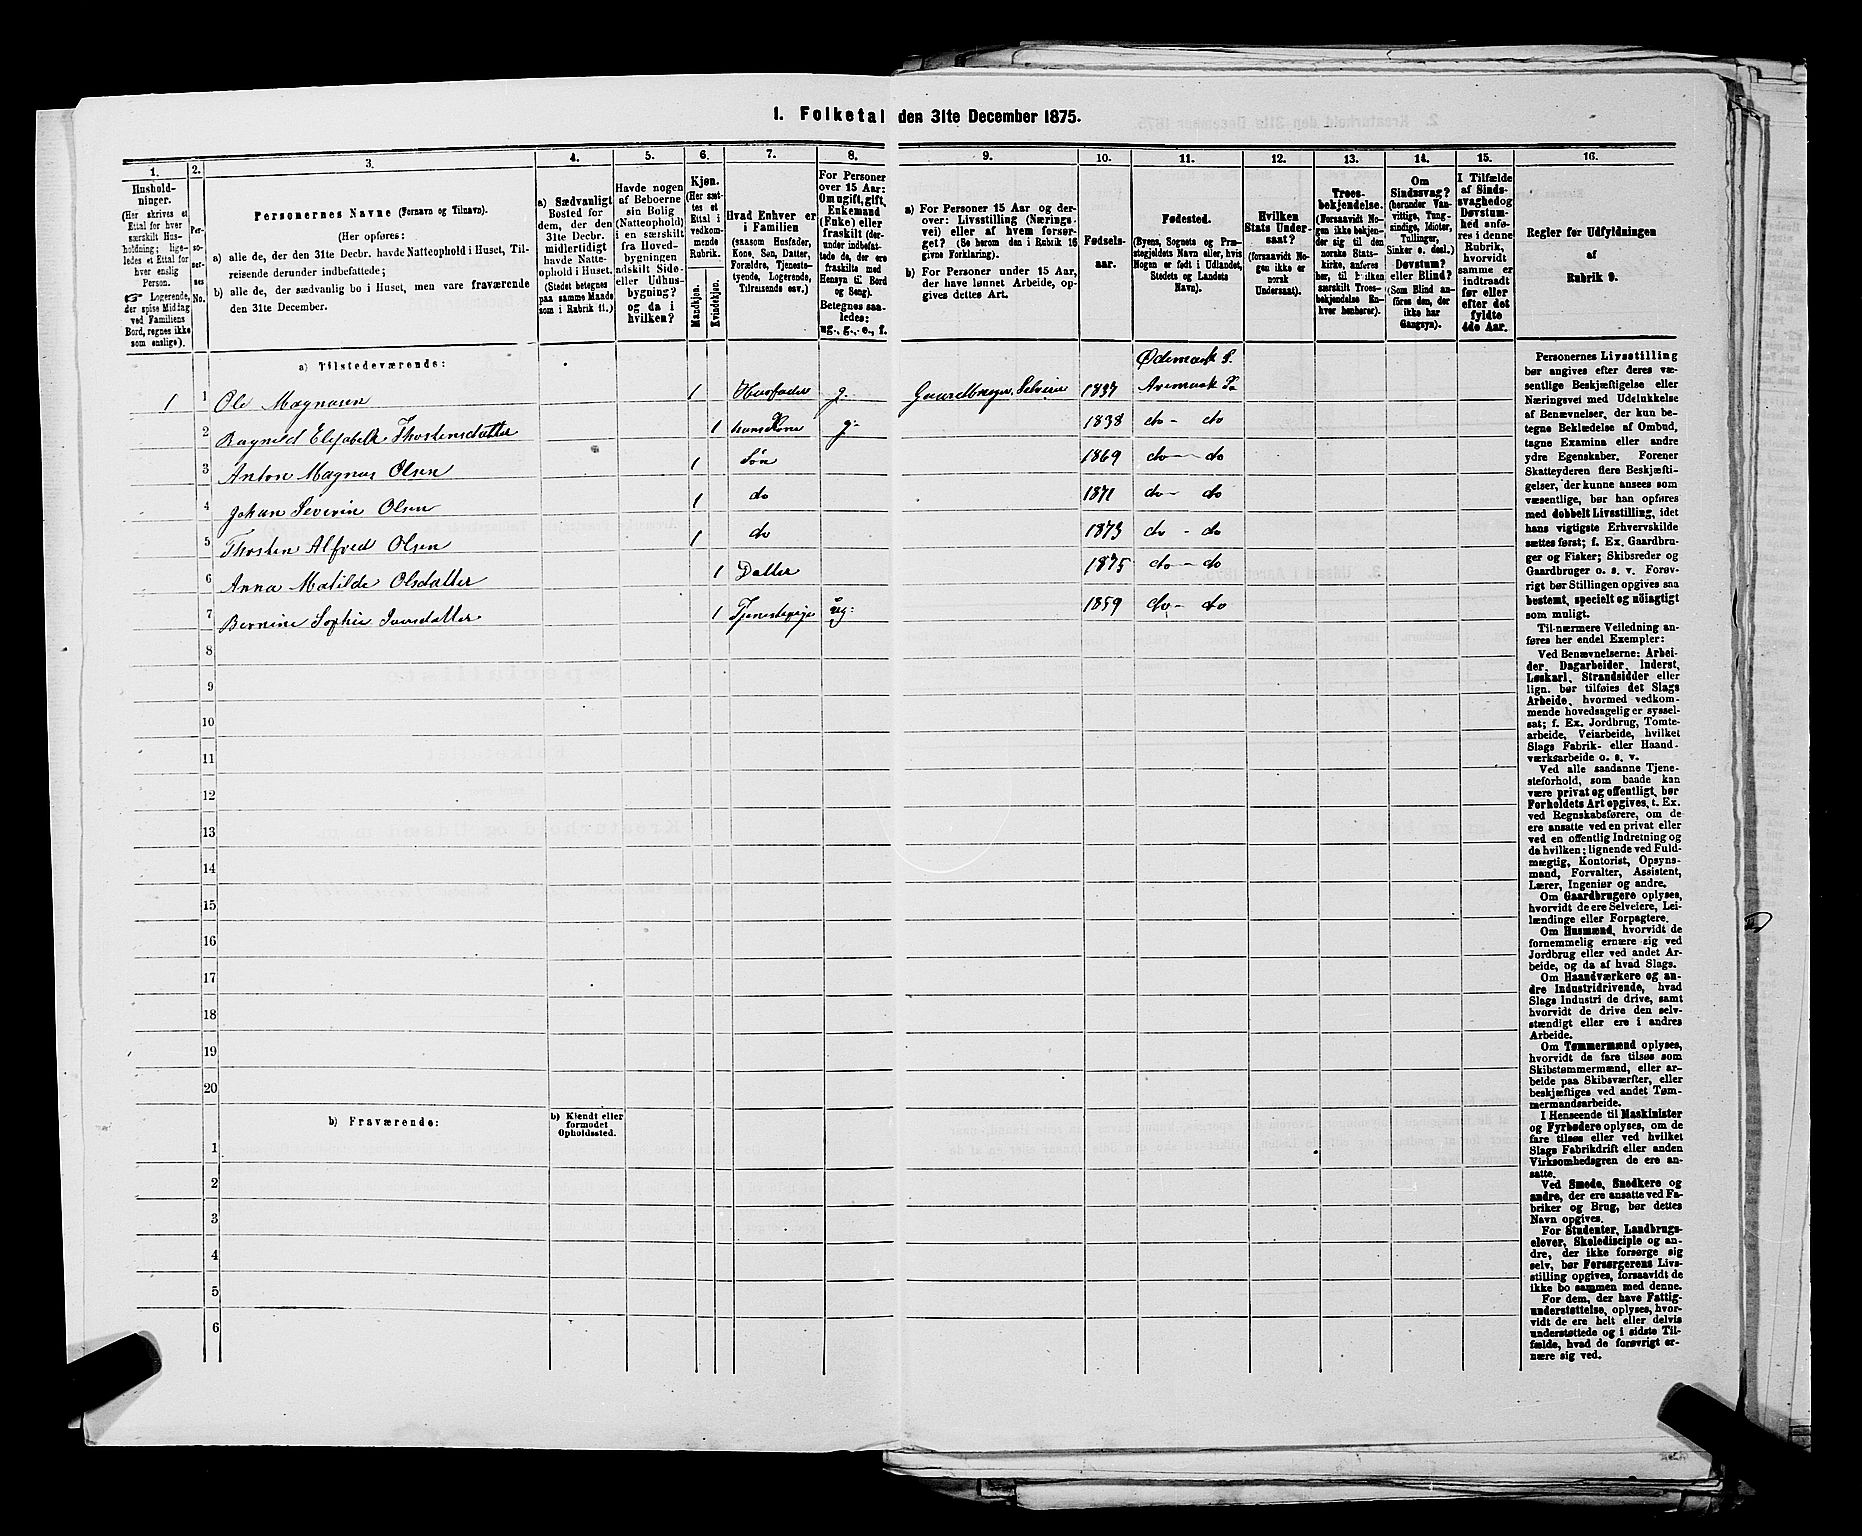 1. Folketal den 31te December 1875.
1.
2.
3.
4.
5.
6.
7.
8.
9.
10.
11.
12.
13.
14.
15.
16.
Hushold-
ninger.
(Her skrives et
Ettal for hver
særskilt Hus-
holdning; lige-
ledes et Ettal for
hver enslig
Person.
☞ Logerende,
der spise Middag
ved Familiens
Bord, regnes ikke
som enslige).
Per-
so-
ner-
nes
No.
Personernes Navne (Fornavn og Tilnavn).
(Her opføres:
a) alle de, der den 31te Decbr. havde Natteophold i Huset, Til-
reisende derunder indbefattede;
b) alle de, der sædvanlig bo i Huset, men vare fraværende
den 31te December.
a) Sædvanligt
Bosted for
dem, der den
31te Decbr.
midlertidigt
havde Natte-
ophold i Huset.
(Stedet betegnes
paa samme Maade
som i Rubrik 11.)
Havde nogen
af Beboerne
sin Bolig
(Natteophold)
i en særskilt
fra Hoved-
bygningen
adskilt Side-
eller Udhus-
bygning?
og da i
hvilken?
Kjøn.
(Her sæt-
tes et
Ettal i
vedkom-
mende
Rubrik.
Mandkjøn.
Kvindekjøn.
Hvad Enhver er
i Familien
(saasom Husfader,
Kone, Søn, Datter,
Forældre, Tjenests-
tyende, Logerende,
Tilreisende osv.)
For Personer
over 15 Aar:
Om ugift, gift,
Enkemand
(Enke) eller
fraskilt (der-
under indbefat-
tede de, der ere
fraskilte med
Hensyn til Bord
og Seng).
Betegnes saa-
ledes:
ug., g., e., f.
a) For Personer 15 Aar og der-
over: Livsstilling (Nærings-
vei) eller af hvem forsør-
get? (Se herom den i Rubrik 16
givne Forklaring).
b) For Personer under 15 Aar,
der have lønnet Arbeide, op-
gives dettes Art.
Fødsels-
aar.
Fødested.
(Byens, Sognets og Præ-
stegjeldets Navn eller, hvis
Nogen er født i Udlandet,
Stedets og Landets
Navn).
Hvilken
Stats Under-
saat?
(forsaavidt No-
gen ikke er
norsk
Undersaat).
Troes-
bekjendelse.
(Forsaavidt No-
gen ikke bekjen-
der sig til den
norske Stats-
kirke, anføres
her, til hvilken
særskilt Troes-
bekjendelse En-
hver henhører).
Om
Sindssvag?
(herunder Van-
vittige, Tung-
sindige, Idioter,
Tullinger,
Sinker o. desl.)
Døvstum?
eller Blind?
(Som Blind an-
føres den, der
ikke har
Gangsyn).
I Tilfælde
af Sinds-
svaghed og
Døvstum-
hed anfø-
res i denne
Rubrik,
hvorvidt
samme er
indtraadt
før eller
efter det
fyldte
4de Aar.
Regler for Udfyldningen
af
Rubrik 9.
a) Tilstedeværende:
Ødemark S.
1 1 Ole Magnusen 1 Husfader g. Gaardbruger, Selveier 1837 Aremark P.
2 Ragnild Elisabeth Thostensdatter 1 hans Kone g. 1838 do - do
3 Anton Magnus Olsen 1 Søn 1869 do - do
4 Johan Severin Olsen 1 do 1871 do - do
5 Thosten Alfred Olsen 1 do 1873 do - do
6 Anna Matilde Olsdatter 1 Datter 1875 do - do
7 Bernine Sophie Iversdatter 1 Tjenestepige ug: 1859 do - do
8
9
10
11
12
13
14
15
16
17
18
19
20
b) Fraværende:
b) Kjendt eller
formodet
Opholdssted.
1
2
3
4
5
6
Personernes Livsstilling
bør angives efter deres væ-
sentlige Beskjæftigelse eller
Næringsvei med Udelukkelse
af Benævnelser, der kun be-
tegne Beklædelse af Ombud,
tagne Examina eller andre
ydre Egenskaber. Forener
Skatteyderen flere Beskjæfti-
gelser, der kunne ansees som
væsentlige, bør han opføres
med dobbelt Livsstilling, idet
hans vigtigste Erhvervskilde
sættes først; f. Ex. Gaardbru-
ger og Fisker; Skibsreder og
Gaardbruger o. s. v. Forøv-
rigt bør Stillingen opgives saa
bestemt, specielt og nöiagtigt
som muligt.
Til nærmere Veiledning an-
føres her endel Exempler:
Ved Benævnelserne: Arbei-
der, Dagarbeider, Inderst,
Løskarl, Strandsidder eller
lign. bør tilføies det Slags
Arbeide, hvormed vedkom-
mende hovedsagelig er syssel-
sat; f. Ex. Jordbrug, Tomte-
arbeide, Veiarbeide, hvilket
Slags Fabrik- eller Haand-
værksarbeide o. s. v.
Ved alle saadanne Tjene-
steforhold, som baade kan
være privat og offentligt, bør
Forholdets Art opgives, t. Ex.
ved Regnskabsførere, om de
ere ansatte ved en privat eller
ved en offentlig Indretning og
da hvilken; lignende ved Fuld-
mægtig, Kontorist, Opsyns-
mand, Forvalter, Assistent,
Lærer, Ingeniør og andre.
Om Gaardbrugere oplyses,
hvorvidt de ere Selveiere, Lei-
lændinge eller Forpagtere.
Om Husmænd, hvorvidt de
fornemmelig ernære sig ved
Jordbrug eller ved andet Ar-
beide, og da af hvad Slags.
Om Haandværkere og an-
dre Industridrivende, hvad
Slags Industri de drive, samt
hvorvidt de drive den selv-
stændigt eller ere i andres
Arbeide.
Om Tømmermænd oplyses,
hvorvidt de fare tilsøs som
Skibstømmermænd, eller ar-
beide paa Skibsværfter, eller
beskjæftiges ved andet Tøm-
mermandsarbeide.
I Henseende til Maskinister
og Fyrbødere oplyses, om de
fare tilsøs eller ved hvilket
Slags Fabrikdrift eller anden
Virksomhedsgren de ere an-
satte.
Ved Smede, Snedkere og
andre, der ere ansatte ved Fa-
briker og Brug, bør dettes
Navn opgives.
For Studenter, Landbrugs-
elever, Skoledisciple og an-
dre, der ikke forsørge sig
selv, bør Forsørgerens Livs-
stilling opgives, forsaavidt de
ikke bo sammen med denne.
For dem, der have Fattig-
understøttelse, oplyses, hvor-
vidt de ere helt eller delvis
understøttede og i sidste Til-
fælde, hvad de forøvrigt er-
nære sig ved.